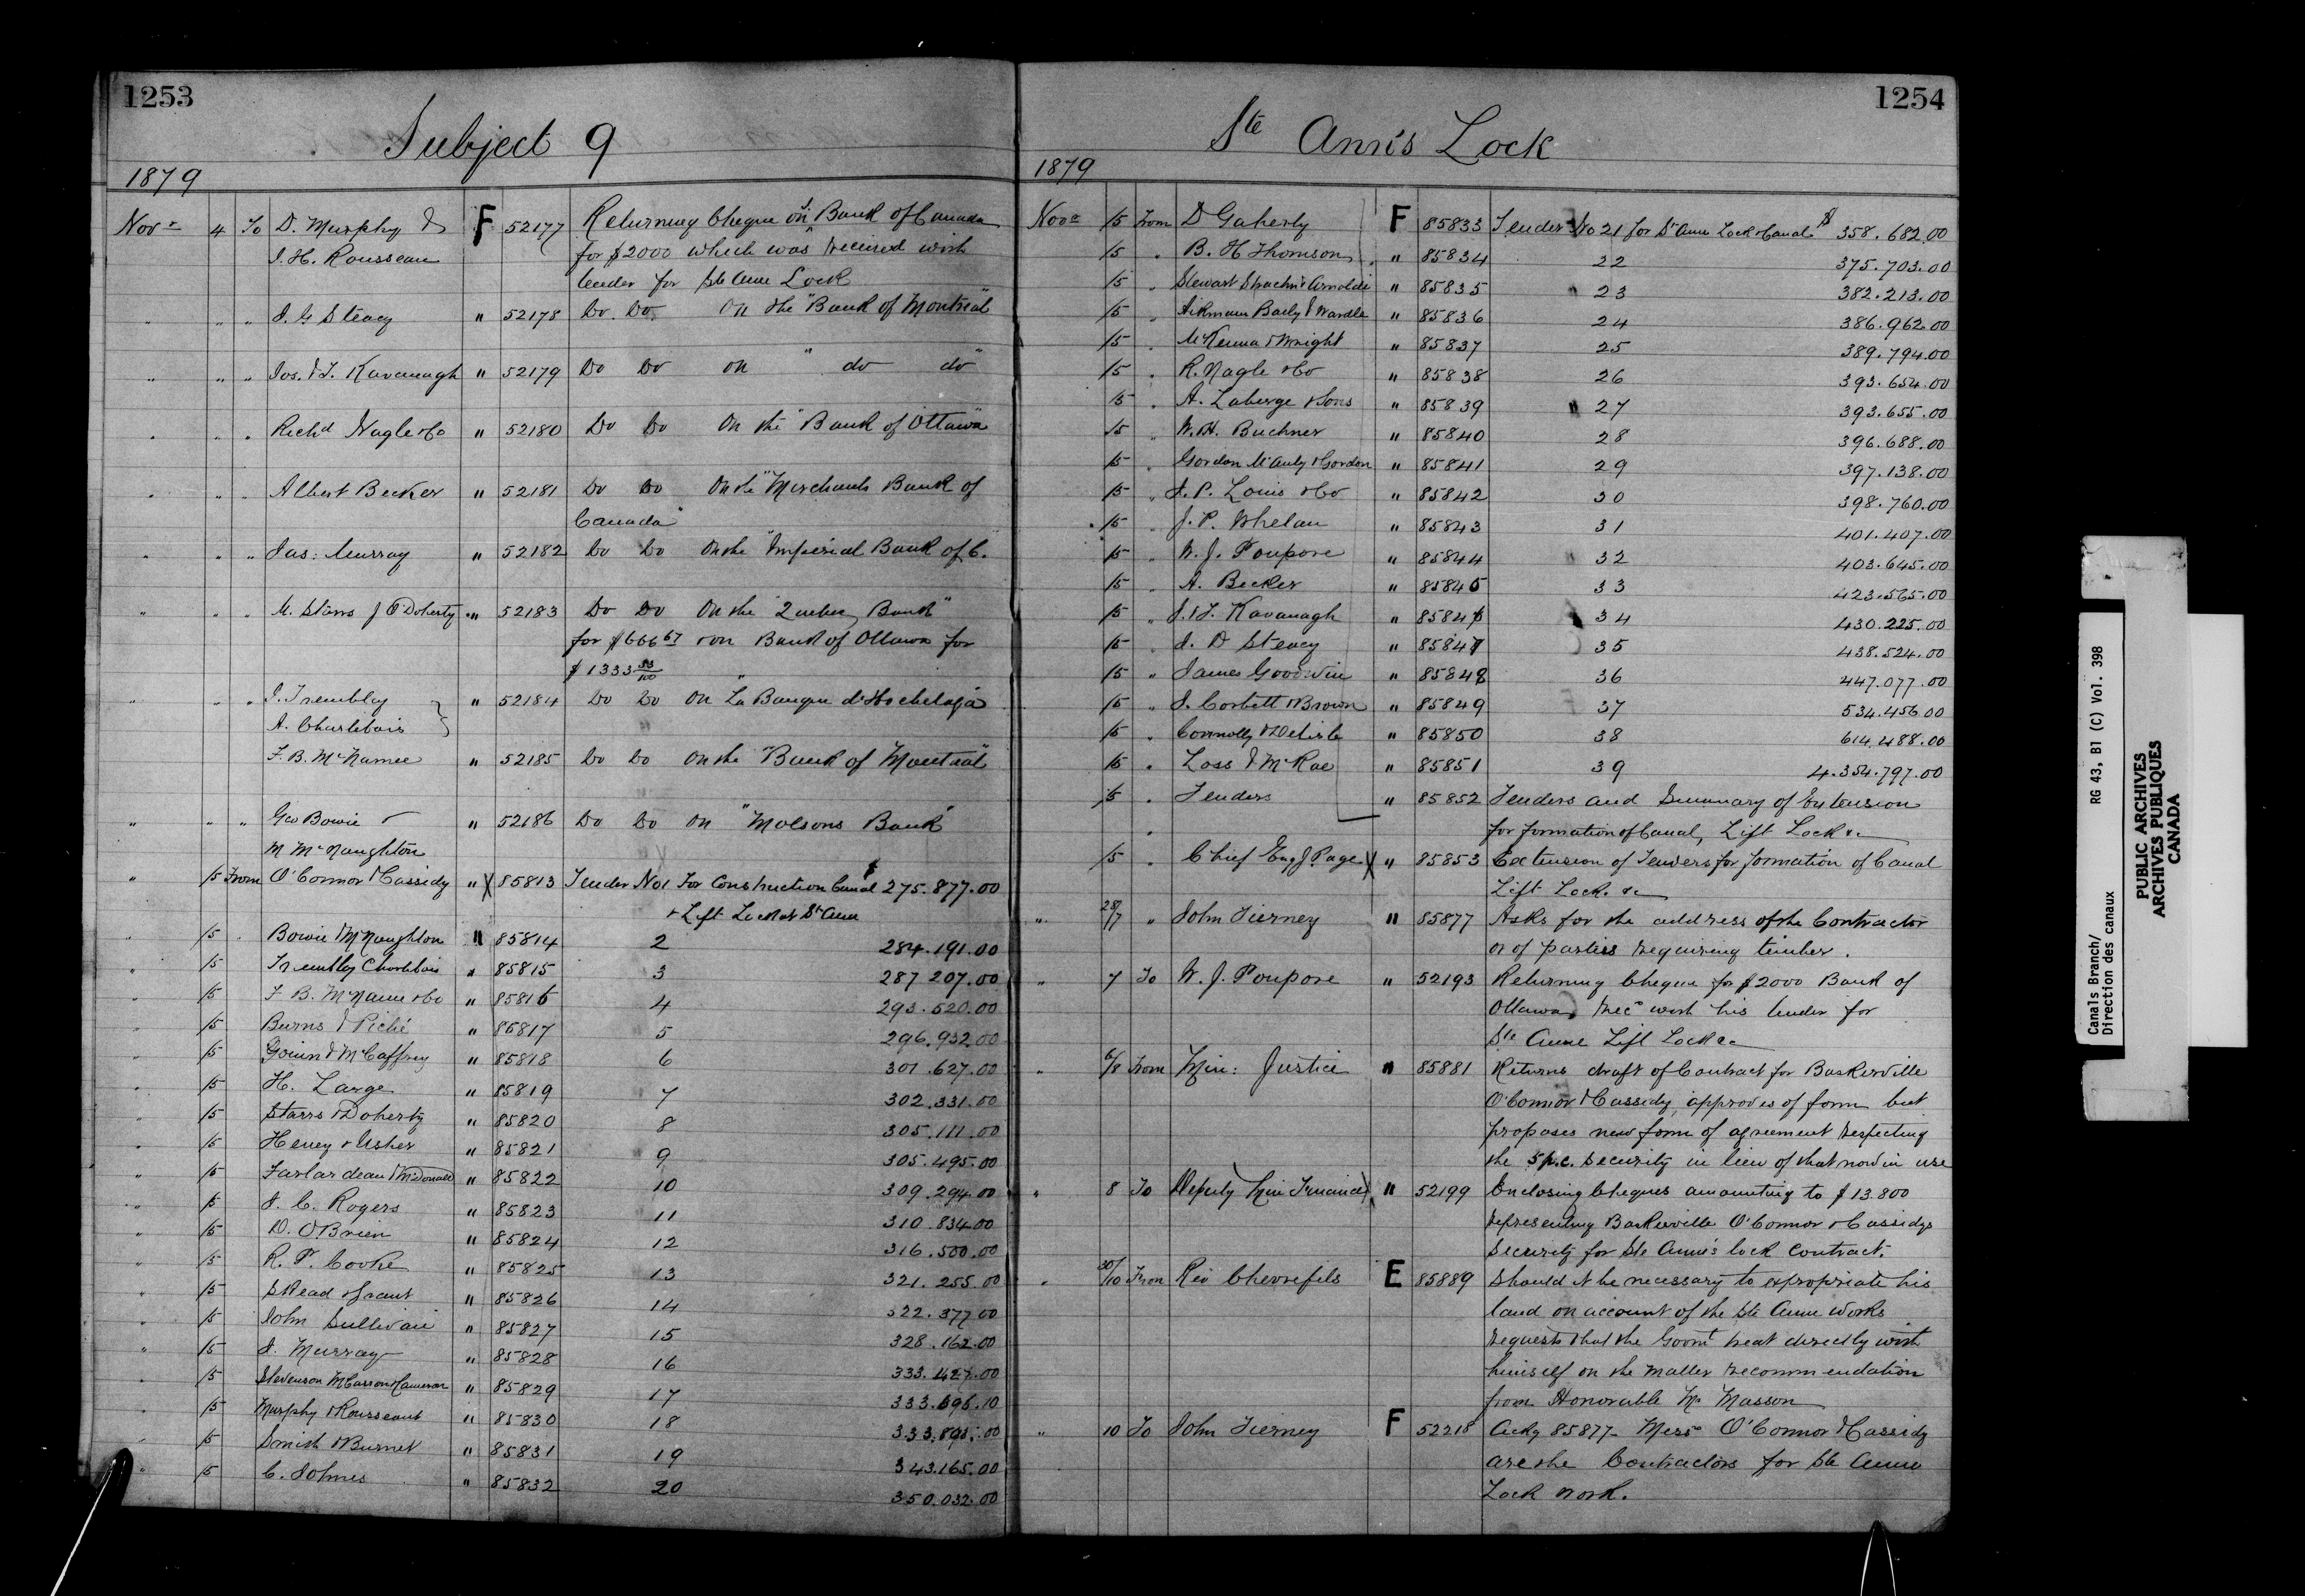 1253
Subject 9
1879
Novr 4 To D. Murphy & F 52177 Returning Cheque on "Bank of Canada
J. H. Rousseau for $2000 which was received with
tender for Ste Anne Lock
" " " J. G. Steacy " 52178 Do. Do. on the "Bank of Montreal"
" " " Jos. & T. Kavanagh " 52179 Do Do on " do do "
" " " Richd Nagle & Co " 52180 Do Do On the "Bank of Ottawa"
" " " Albert Becker " 52181 Do Do On the "Merchants Bank of
Canada"
" " " Jas: Murray " 52182 Do Do On the "Imperial Bank of C.
" " " M. Starrs J O'Doherty " 52183 Do Do On the "Quebec Bank"
for $666 67 & on Bank of Ottawa for
$1333 33/100
" " " J. Trembley " 52184 Do Do On "La Banque d'Hochelaga
A. Charlebois
F. B. McNamee " 52185 Do Do On the "Bank of Montreal"
" " " Geo Bowie & " 52186 Do Do on "Molsons Bank"
M McNaughton
" 15 From O'Connor & Cassidy " X 85813 Tender No 1 For Construction Canal $ 275.877.00
& Lift Lock at St Anne
" 15 " Bowie & McNaughton " 85814 2 284.191.00
" 15 Trembley Charlebois " 85815 3 287.207.00
" 15 F. B. McNamee & Co " 85816 4 293.520.00
" 15 Burns & Piché " 85817 5 296.932.00
" 15 Goiun & McCaffrey " 85818 6 301.627.00
" 15 H. Large " 85819 7 302.331.00
" 15 Starrs & Doherty " 85820 8 305.111.00
" 15 Heney & Usher " 85821 9 305.495.00
" 15 Farlardeau & McDonald " 85822 10 309.294.00
" 15 J. C. Rogers " 85823 11 310.834.00
" 15 D. O'Brien " 85824 12 316.500.00
" 15 R. P. Cooke " 85825 13 321.255.00
" 15 Skead & Grant " 85826 14 322.377.00
" 15 John Sullivan " 85827 15 328.162.00
" 15 J. Murray " 85828 16 333.427.00
" 15 Stevenson McCarron & Cameron " 85829 17 333.696.10
" 15 Murphy & Rousseau " 85830 18 333.898.00
" 15 Smith & Burnet " 85831 19 343.165.00
" 15 C. Holmes " 85832 20 350.032.00
1254
Ste Ann's Lock
1879
Novr 15 From D Gaherty F 85833 Tender No 21 for St Anne Lock & Canal $ 358.682.00
15 " B. H Thomson " 85834 22 375.703.00
15 " Stewart Strachn & Arnoldi " 85835 23 382.213.00
15 " Aikmann Baily & Wardle " 85836 24 386.962.00
15 " McKenna & Wright " 85837 25 389.794.00
15 " R. Nagle & Co " 85838 26 393.654.00
15 " A. Laberge & Sons " 85839 27 393.655.00
15 " W. H. Buchner " 85840 28 396.688.00
15 " Gordon McAuly & Gordon " 85841 29 397.138.00
15 " J. P. Louis & Co " 85842 30 398.760.00
15 " J. P. Whelan " 85843 31 401.407.00
15 " W. J. Poupore " 85844 32 403.645.00
15 " A. Becker " 85845 33 423.565.00
15 " J. & T. Kavanagh " 85846 34 430.225.00
15 " J. D Steacy " 85847 35 438.524.00
15 " James Goodwin " 85848 36 447.077.00
15 " J. Corbett & Brown " 85849 37 534.456.00
15 " Connolly & Delisle " 85850 38 614.488.00
15 " Loss & McRae " 85851 39 4.354.797.00
15 " Tenders " 85852 Tenders and Summary of Extension
for formation of Canal, Lift Lock &c
15 " Chief Eng J Page X " 85853 Extension of Tenders for formation of Canal
Lift Lock. &c
" 28/7 " John Tierney " 85877 Asks for the address of the Contractor
or of parties requiring timber.
" 7 To W. J. Poupore " 52193 Returning Cheque for $2000 Bank of
Ottawa, recd with his tender for
Ste Anne Lift Lock &c
" 6/8 From Min: Justice " 85881 Returns draft of Contract for Baskerville
O'Connor & Cassidy, approves of form but
proposes new form of agreement respecting
the 5 p.c. security in lieu of that now in use
" 8 To Deputy Min Finance X " 52199 Enclosing Cheques amounting to $13.800
representing Baskerville O'Connor & Cassidys
Security for Ste Anne's lock Contract.
" 30/10 From Rev Chevrefils E 85889 Should it be necessary to expropriate his
land on account of the Ste Anne works
requests that the Govmt treat directly with
himself on the matter recommendation
from Honorable Mr Masson
" 10 To John Tierney F 52218 Ackg 85877 Messrs O'Connor & Cassidy
are the Contractors for Ste Anne
Lock work.
Canals Branch/ RG 43, B1 (C) Vol. 398
Direction des canaux
PUBLIC ARCHIVES
ARCHIVES PUBLIQUES
CANADA